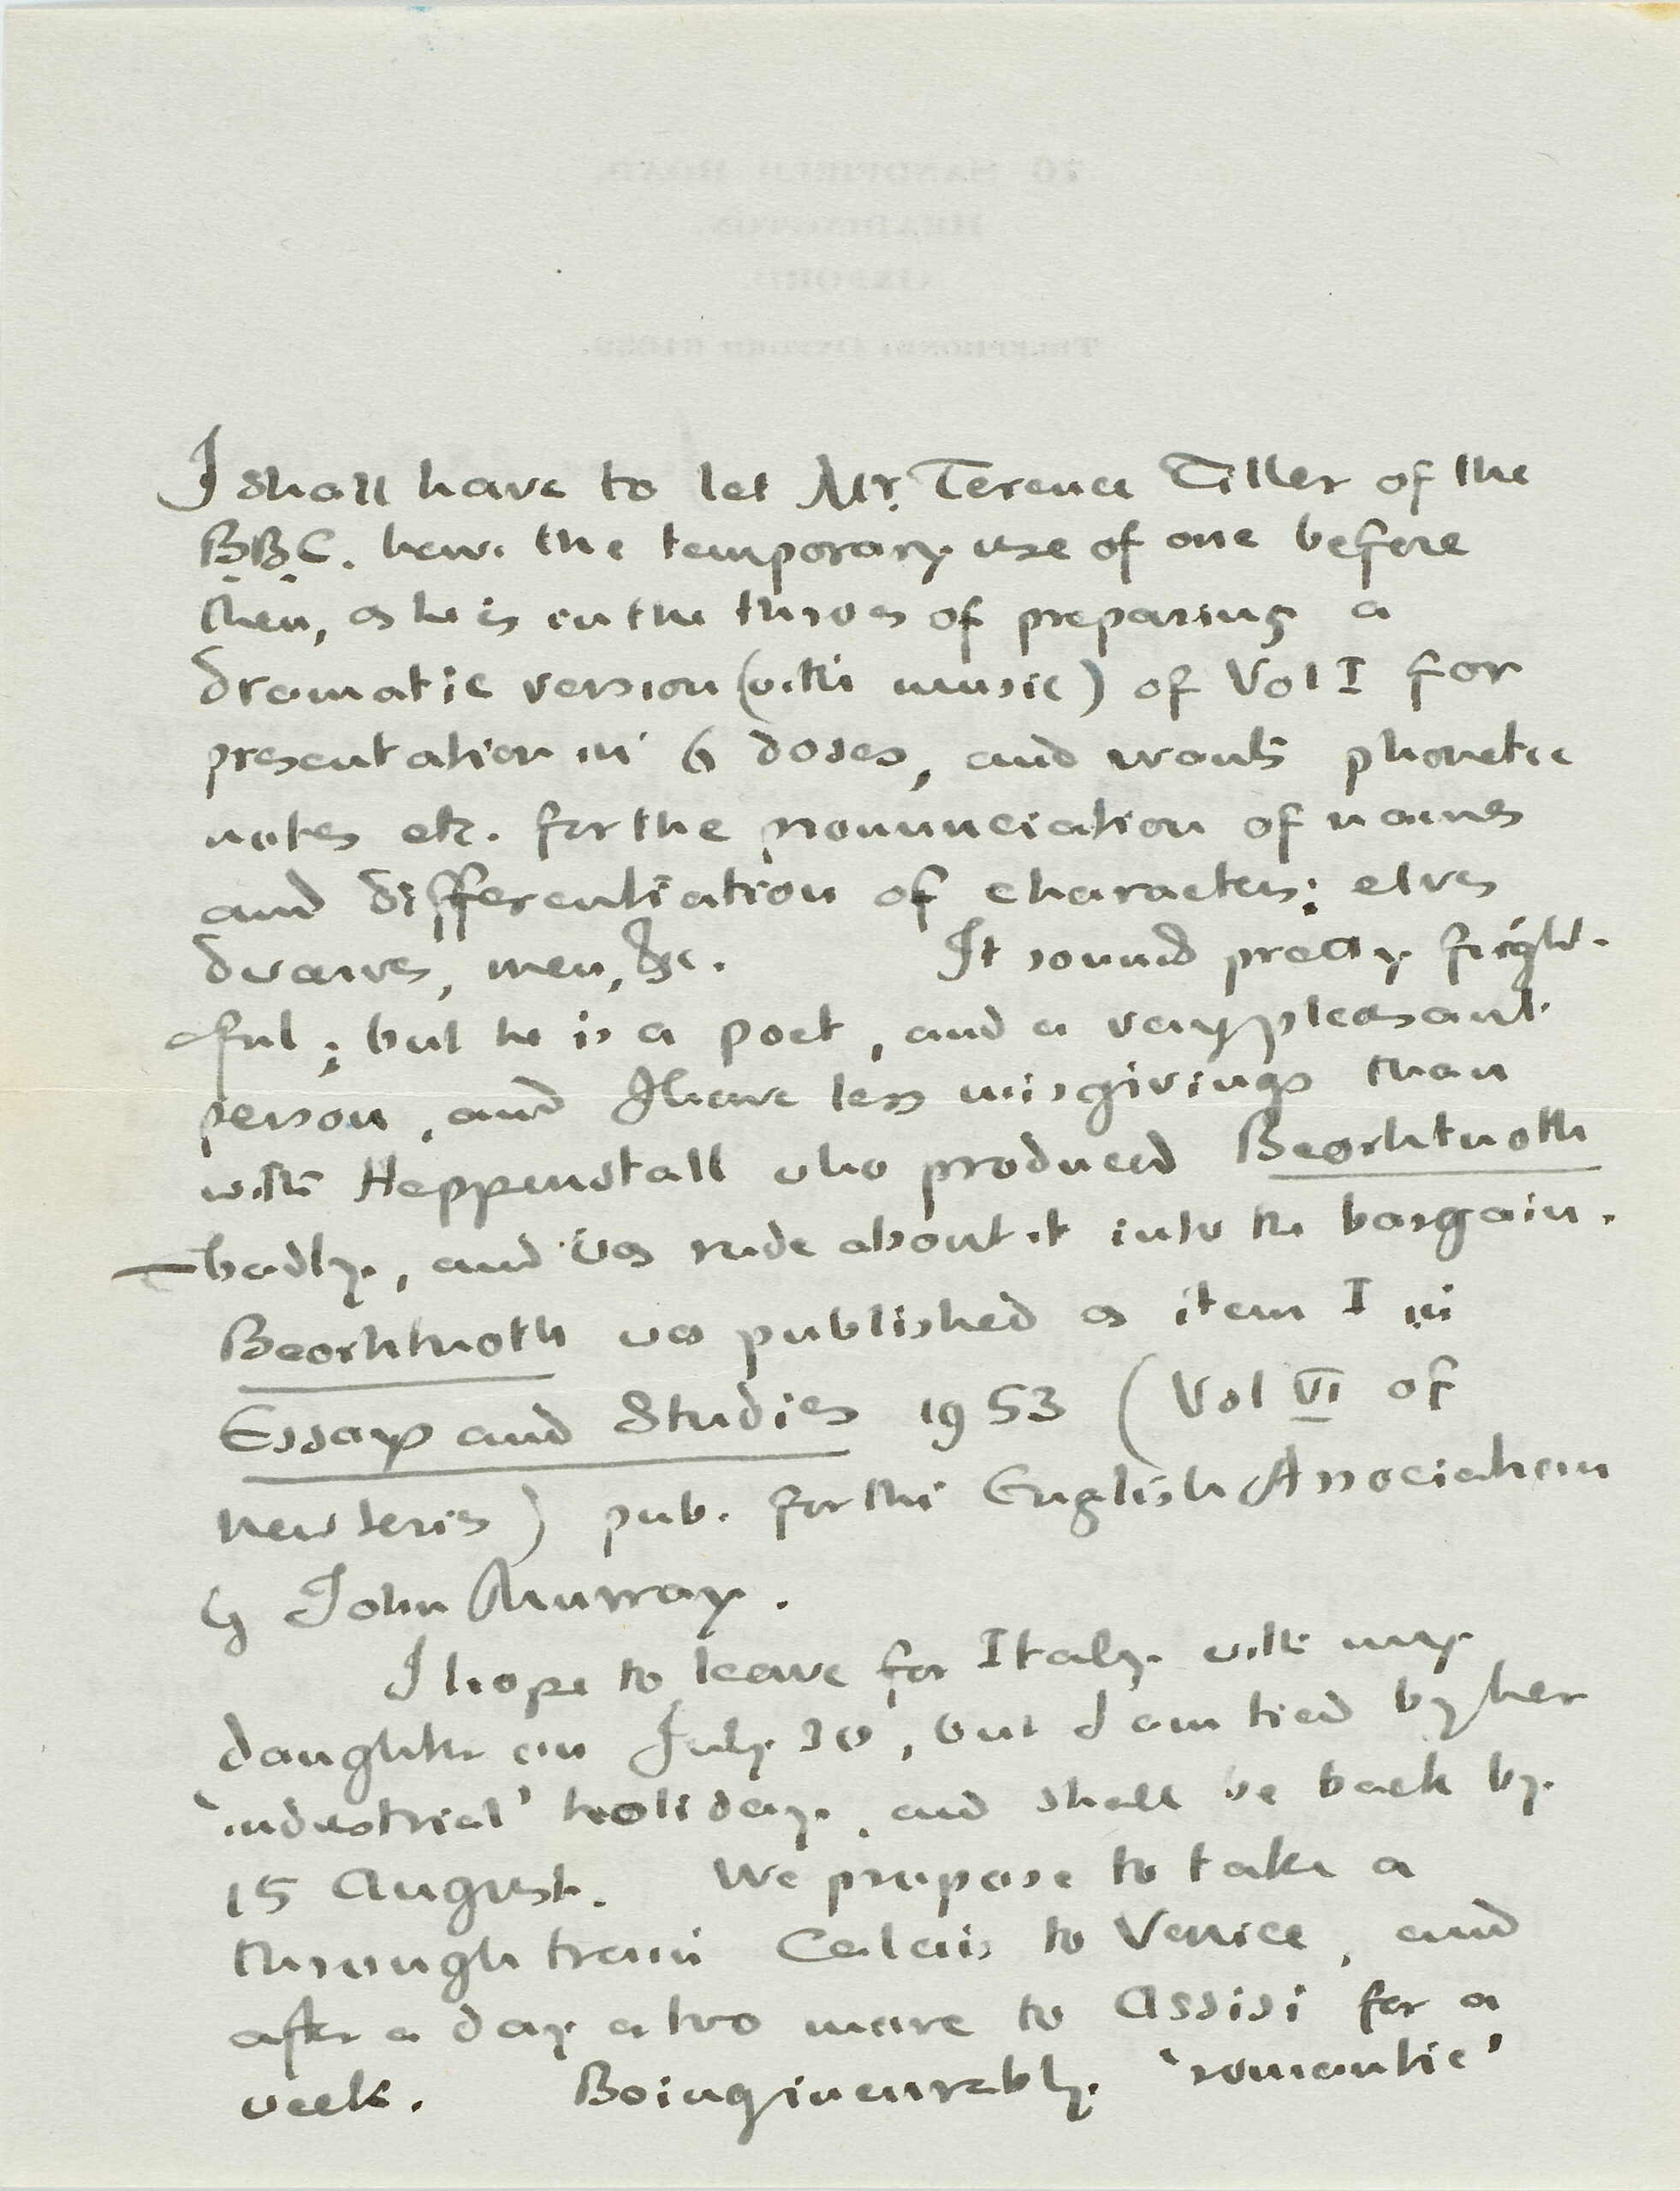 76 SANDFIELD ROAD,
HEADINGTON,
OXFORD.
TELEPHONE: OXFORD
I shall have to let Mr. Terence Tiller of the
B.B.C. have the temporary use of one before
then, as he is in the throes of preparing a
dramatic version (with music) of Vol I for
presentation in 6 doses, and wants phonetic
notes etc. for the pronunciation of names
and differentiation of characters: elves
dwarves, men, &c. It sounds pretty fright-
ful; but he is a poet, and a very pleasant
person, and I have less misgivings than
with Heppenstall who produced Beorhtnoth
badly, and was rude about it into the bargain.
Beorhtnoth was published as item I in
Essays and Studies 1953 (Vol VI of
new series) pub. for the English Association
by John Murray.
I hope to leave for Italy with my
daughter on July 30, but I am tied by her
'industrial' holiday, and shall be back by
15 August. We propose to take a
through train Calais to Venice, and
after a day or two more to Assisi for a
week. Being incurably 'romantic'